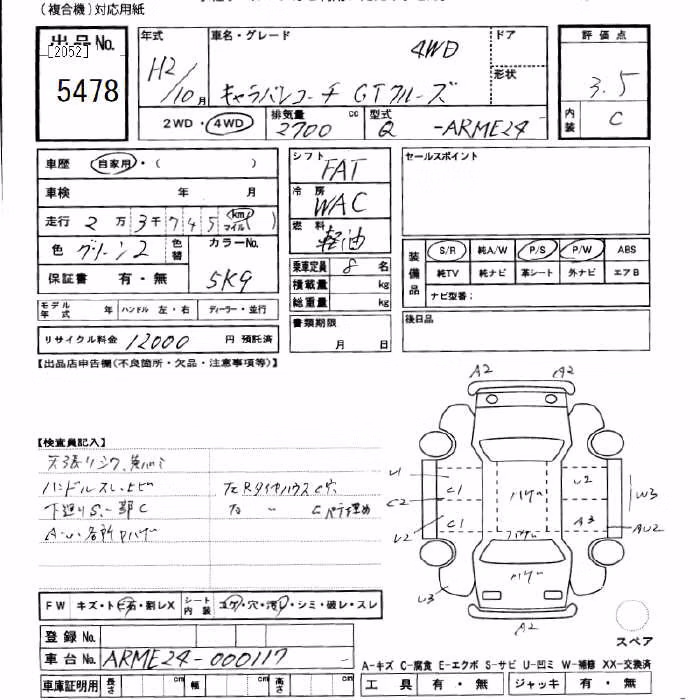 (複合機)対応用紙
出品No.
[2052]
5478
年式
H2/10月
車名・グレード
4WD
キャラバンコーチ GTクルーズ
ドア
形状
評価点
3.5
内装
C
2WD・4WD
排気量
2700
cc
型式
Q -ARME24
車歴
自家用・( )
車検 年 月
走行 2万3千745 km マイル( )
色 グリーン2
色替
カラーNo.
5K9
保証書 有・無
シフト
FAT
冷房
WAC
燃料
軽油
乗車定員 8 名
積載量 kg
総重量 kg
書類期限
月 日
セールスポイント
装備品
S/R 純A/W P/S P/W ABS
純TV 純ナビ 革シート 外ナビ エアB
ナビ型番:
後日品
モデル年式 年
ハンドル 左・右
ディーラー・並行
リサイクル料金 12000 円 預託済
【出品店申告欄(不良箇所・欠品・注意事項等)】
【検査員記入】
ハンドルスレ
下廻りS、一部C
A・U・各所
A2 A2
U1
C1
U2
C2
W3
C1
A3
U2
AU2
U3
A2
スペア
FW キズ・ヒビ石・割レX
シート内装
コゲ・穴・汚レ・シミ・破レ・スレ
登録No.
車台No. ARME24-000117
A-キズ C-腐食 E-エクボ S-サビ U-凹ミ W-補修 XX-交換済
車庫証明用
長さ cm
幅 cm
高さ cm
工具 有・無
ジャッキ 有・無